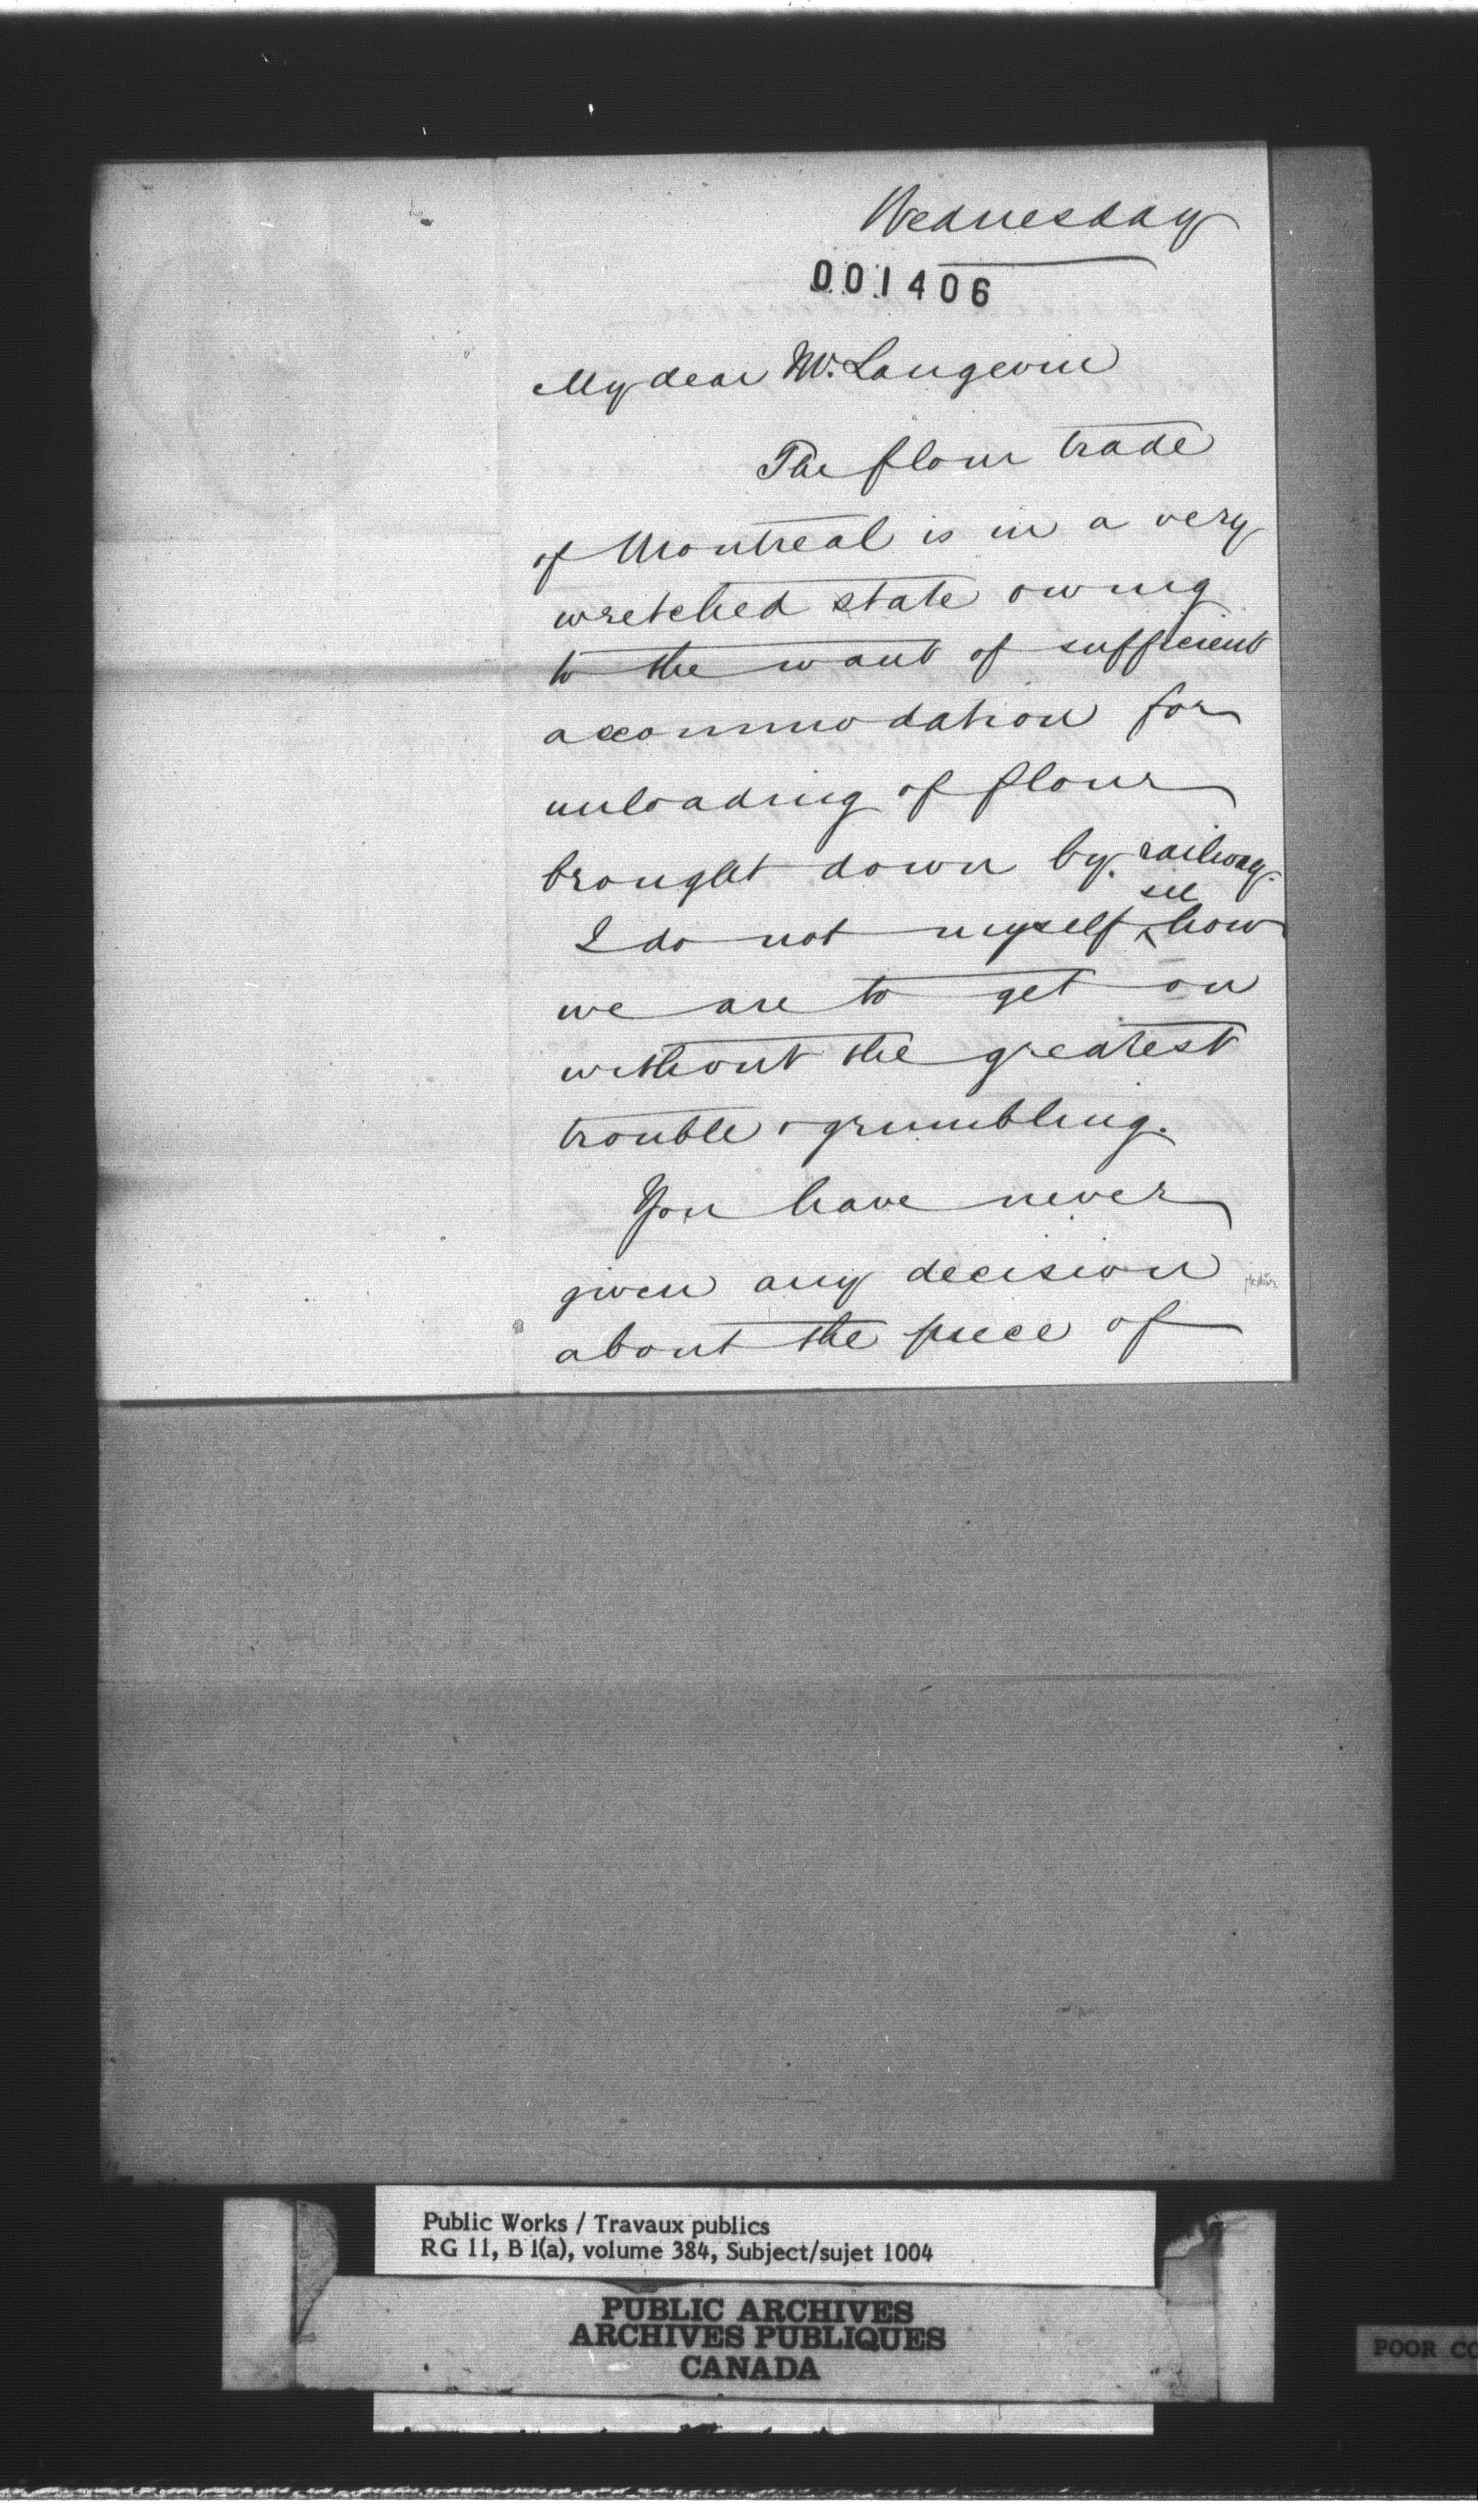 Wednesday
001406
My dear Mr. Langevin
The flour trade
of Montreal is in a very
wretched state owing
to the want of sufficient
accommodation for
unloading of flour
brought down by railway.
see
I do not myself ^ how
we are to get on
without the greatest
trouble & grumbling.
You have never
given any decision
about the piece of
Public Works / Travaux publics
RG 11, B 1(a), volume 384, Subject/sujet 1004
PUBLIC ARCHIVES
ARCHIVES PUBLIQUES
CANADA
POOR CO